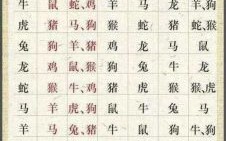 牛 鼠 蛇、鸡 羊 马 龙 羊、狗
虎 猪 马、狗 猴 蛇 猪 蛇、猴
兔 狗 羊、猪 鸡 龙 马 鼠
龙 鸡 鼠、猴 狗 兔 牛 龙
蛇 猴 牛、鸡 猪 虎 猴 虎、猴
马 羊 虎、狗 鼠 牛 兔 马
羊 马 兔、猪 牛 鼠 狗 牛、狗